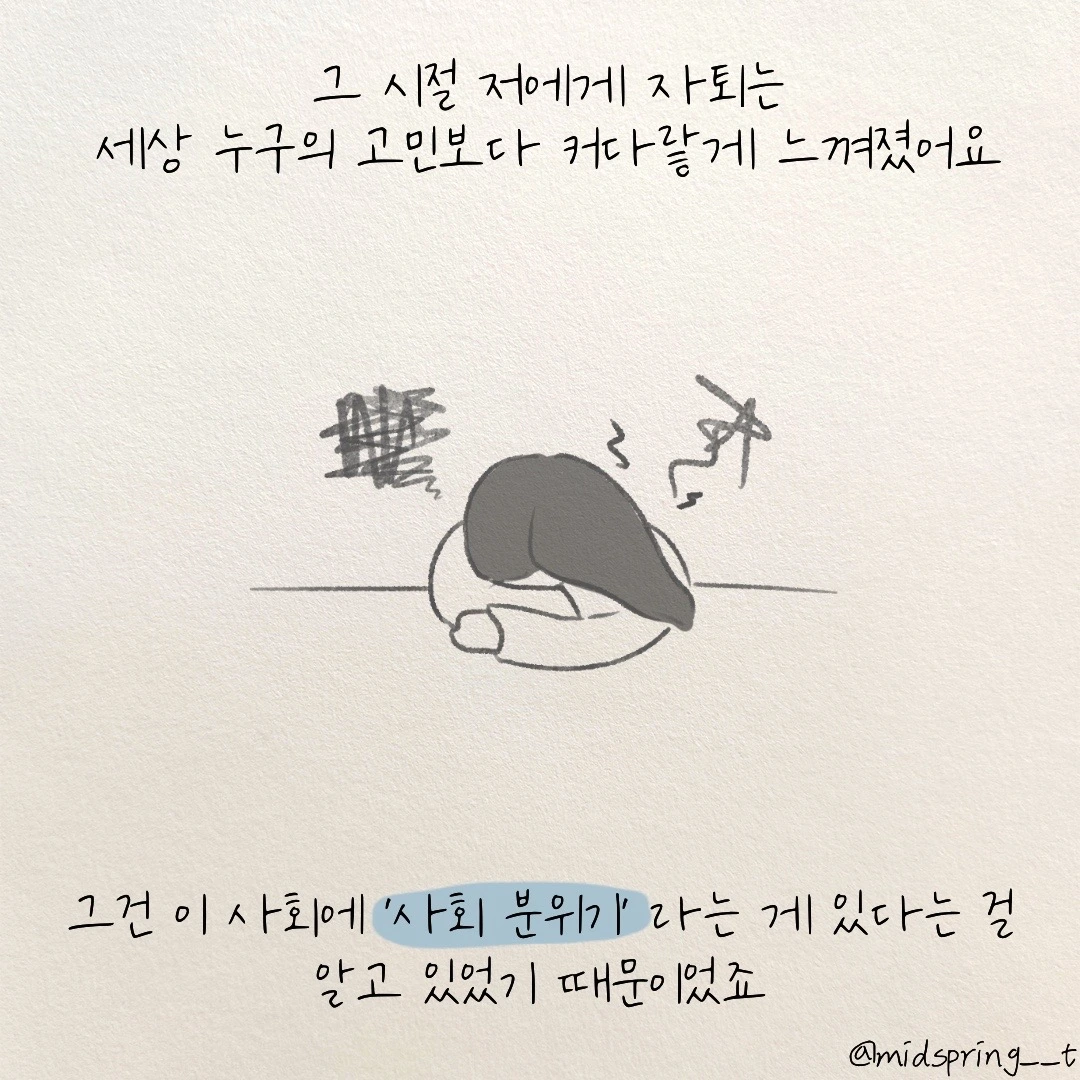 그 시절 저에게 자퇴는
세상 누구의 고민보다 커다랗게 느껴졌어요
그건 이 사회에 '사회 분위기' 라는 게 있다는 걸
알고 있었기 때문이었죠
@midspring__t